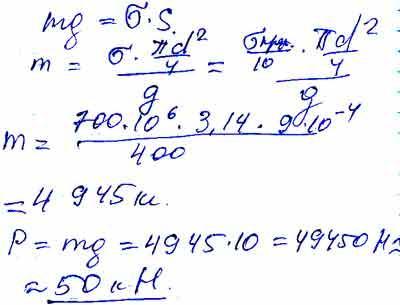 mg = σ·S.
m = σ · πd²/4 / g = σпр./10 · πd²/4 / g
m = 700·10⁶ · 3,14 · 9·10⁻⁴ / 400
= 4 945 кг.
P = mg = 4945·10 = 49450 Н ≈
≈ 50 кН.